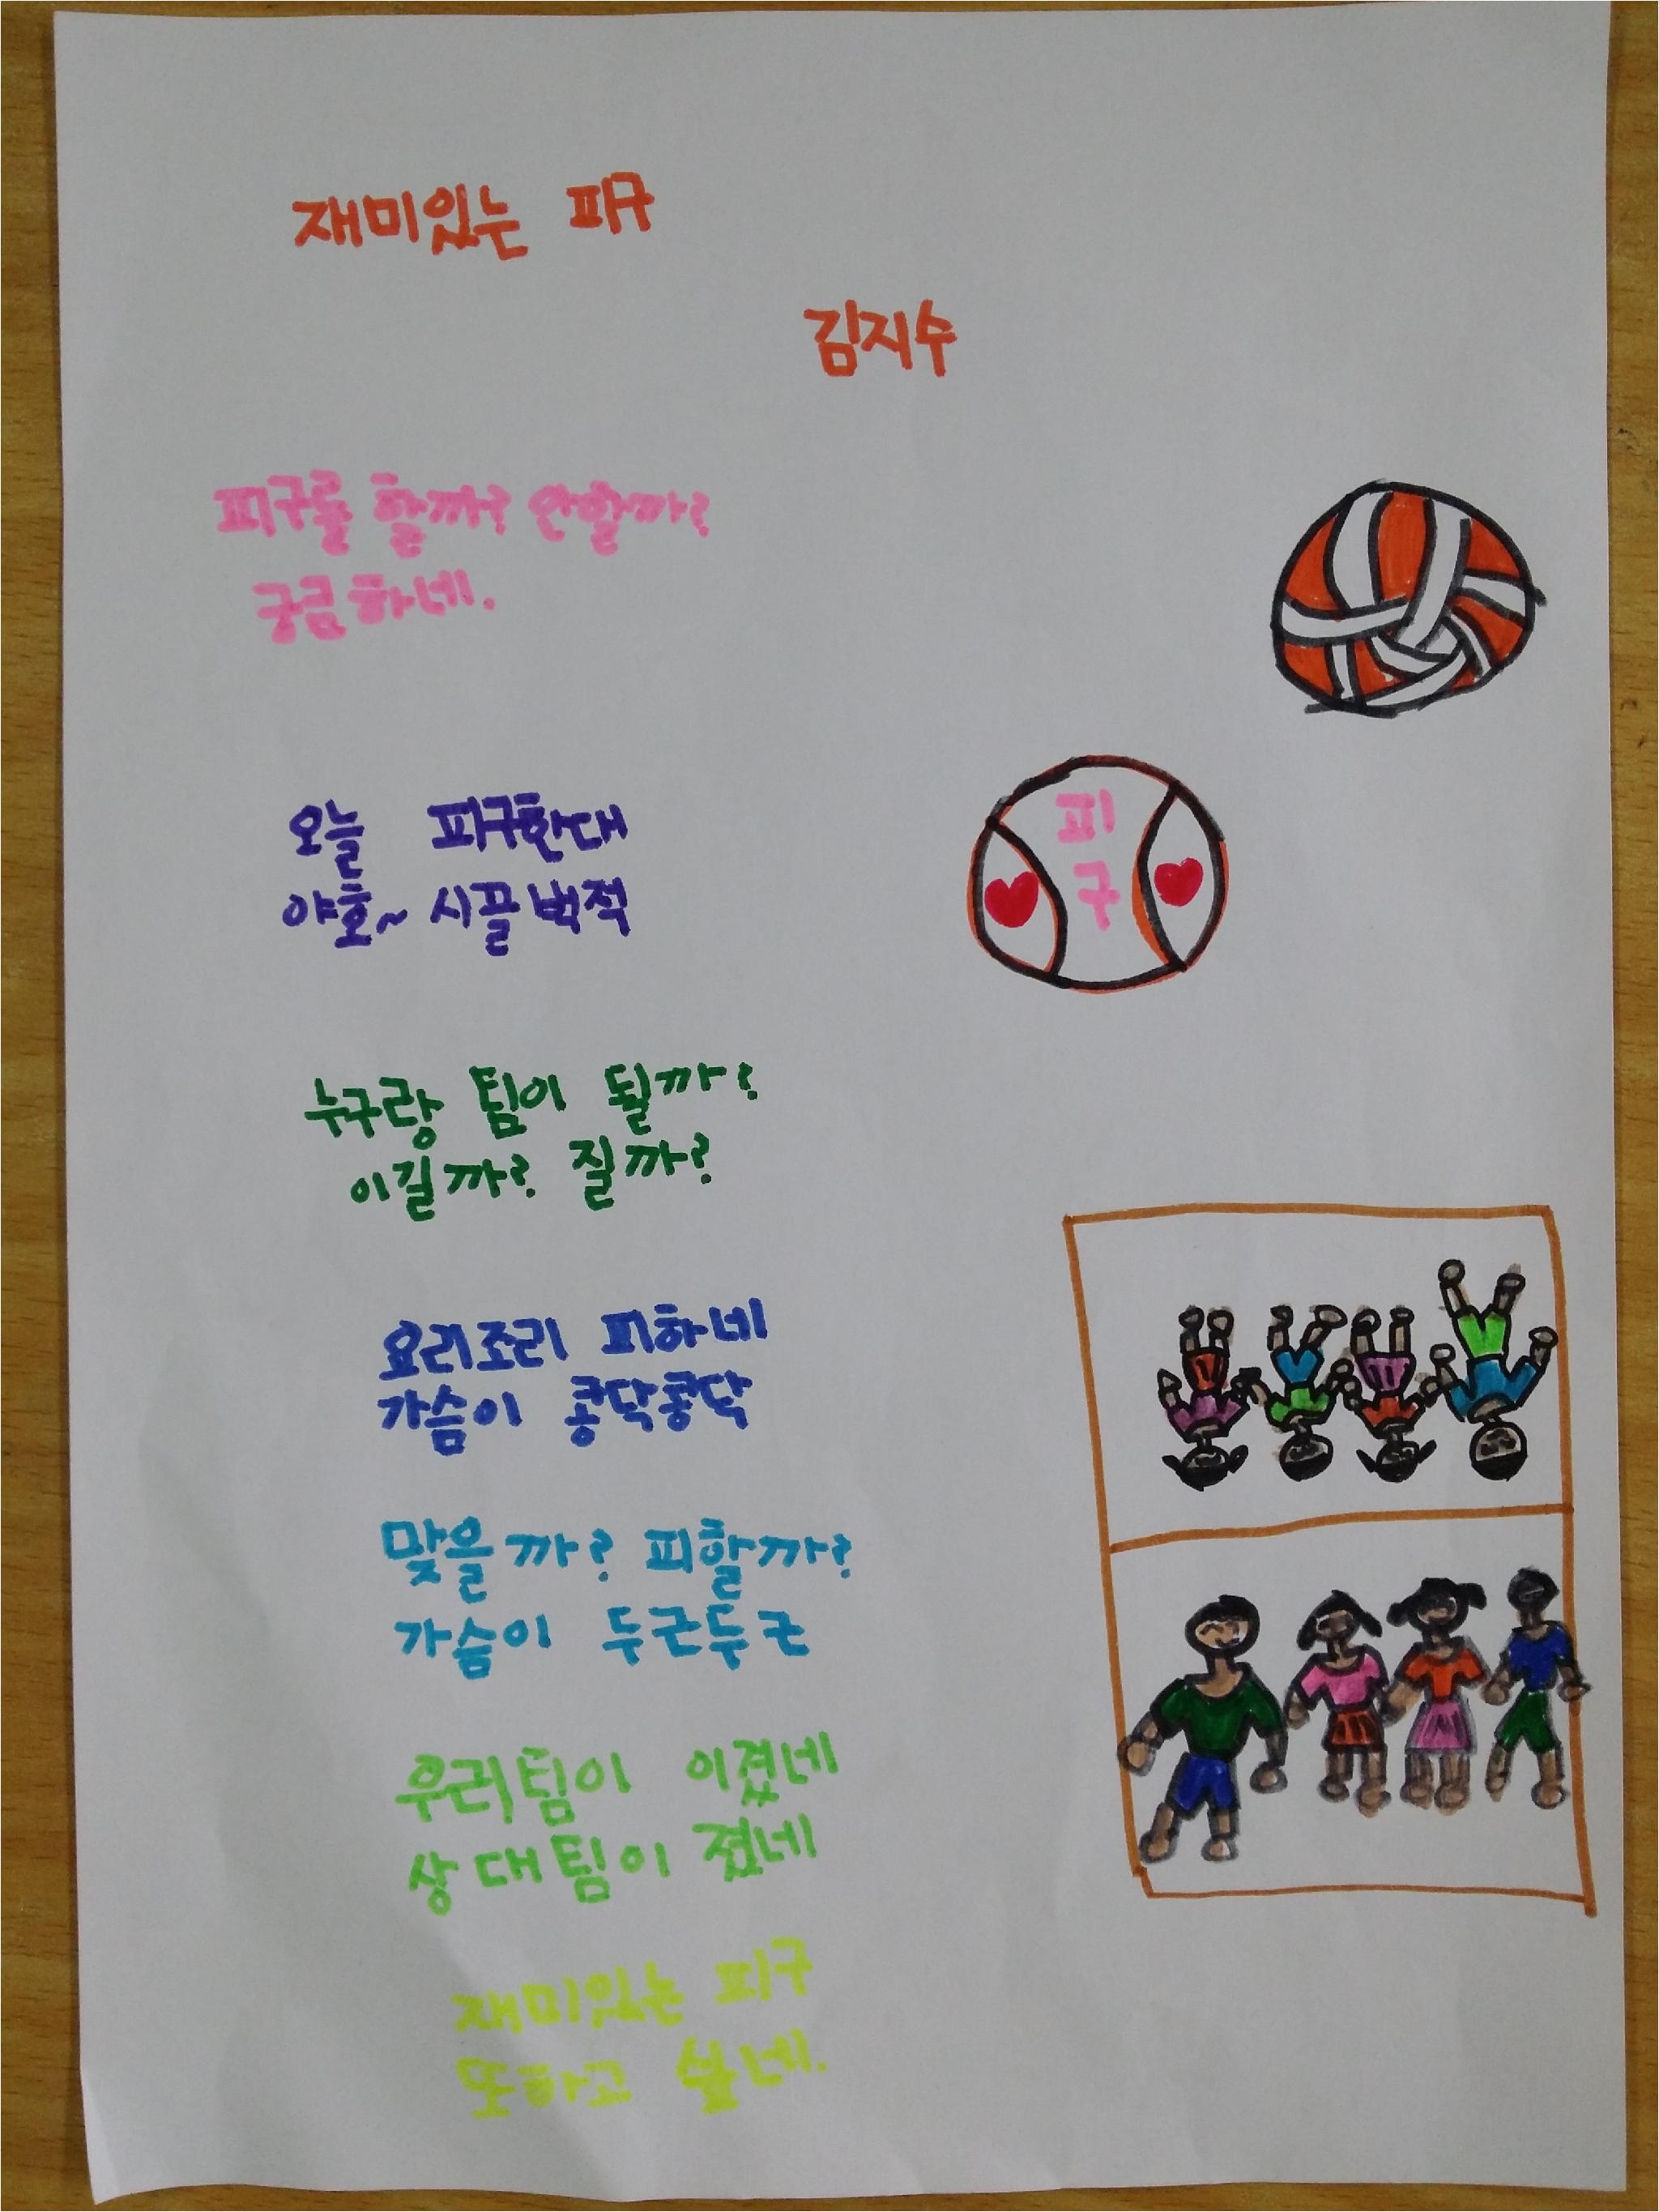 재미있는 피구
김지수
피구를 할까? 안할까?
궁금하네.
오늘 피구한대
야호~ 시끌벅적
피
구
누구랑 팀이 될까?
이길까? 질까?
요리조리 피하네
가슴이 콩닥콩닥
맞을까? 피할까?
가슴이 두근두근
우리팀이 이겼네
상대팀이 졌네
재미있는 피구
또하고 싶네.